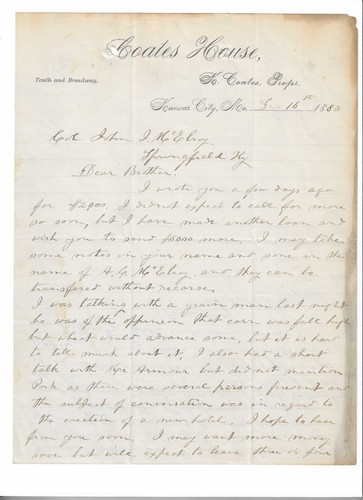 Coates House,
Tenth and Broadway. K. Coates, Propr.
Kansas City, Mo 5 16th 1883
Col John I. McElroy
Springfield Ky
Dear Brother
I wrote you a few days ago
for $2000. I did not expect to call for more
so soon, but I have made another loan and
wish you to send $5000 more. I may take
some notes in your name and some in the
name of A. G. McElroy and they can be
transfered without recorse.
I was talking with a grain man last night
he was of the oppinion that corn was full high
but wheat would advance some, but it is hard
to tell much about it. I also had a short
talk with Armour but did not mention
Pork as there were several persons present and
the subject of conversation was in regard to
the erection of a new hotel. I hope to hear
from you soon. I may want more money
soon but will expect to leave three or four